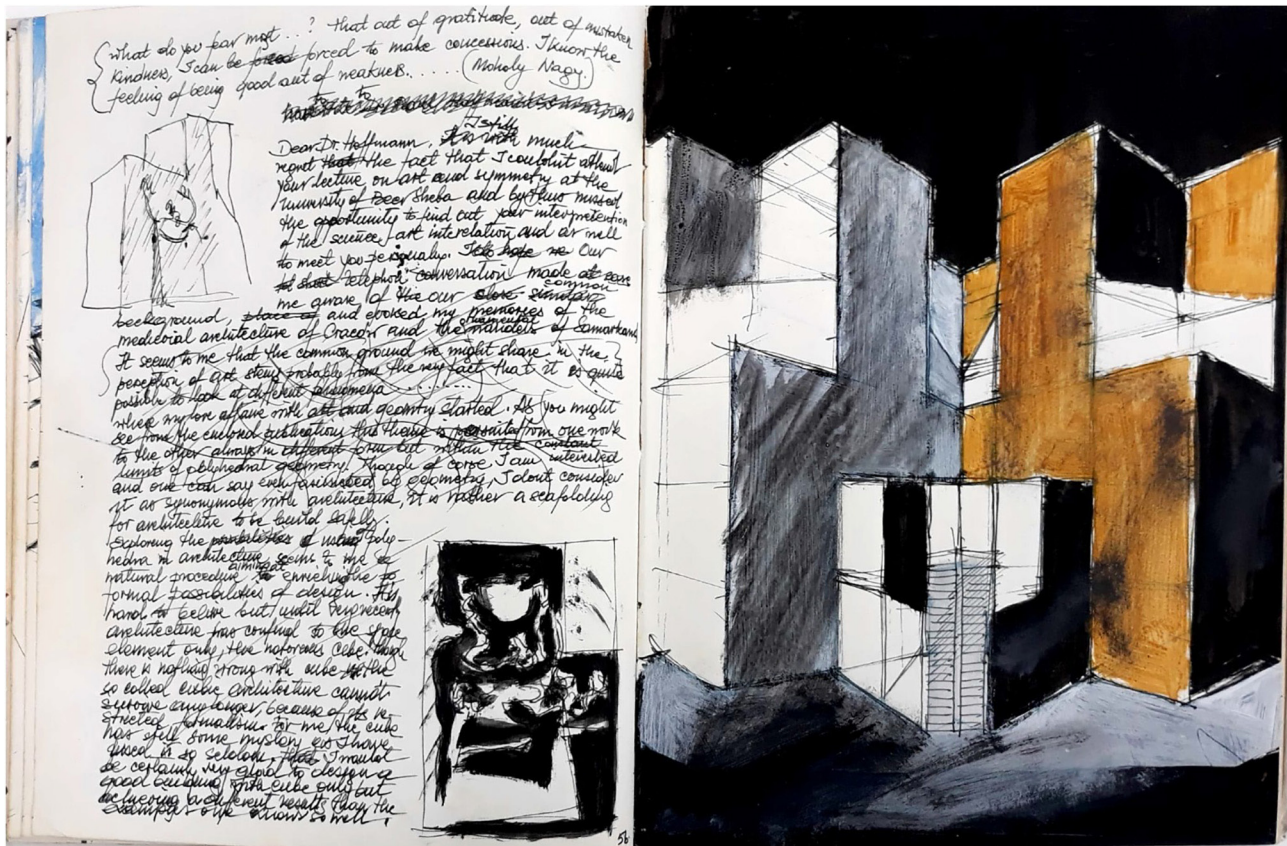 What do you fear most ...? That out of gratitude, out of mistaken
kindness, I can be forced forced to make concessions. I know the
feeling of being good out of weakness...... (Moholy Nagy.)
to to
Dear Dr. Hoffmann, It is with I still much
regret that the fact that I couldn't attend
your lecture on art and symmetry at the
University of Beer Sheba and by thus missed
the opportunity to find out your interpretation
of the science/art interelation and as well
to meet you Our
telephon conversation made
me aware of the our close similar common
background, and evoked my memories of the
medieval architecture of Cracow and the ornamental of Samarkand,
It seems to me that the common ground we might share in the
perception of art stems probably from the very fact that it is quite
possible to look at different phenomena .........
where my love affaire with art and geometry started. As you might
see from the enclosed publications this theme is from one work
to the other always in different form but within the constant
limits of polyhedral geometry. Though of corse I am interested
and one can say even fascinated by geometry, I dont consider
it as synonymous with architecture, it is rather a scafolding
for architecture to be build safely.
Exploring the posibilities of using poly-
hedra in architecture seems to me a
natural procedure aiming at enriching the
formal possibilities of design. It is
hard to belive but until very recently
architecture was confined to one shape
element only, the notorious cube, though
there is nothing wrong with cube the
so called cubic architecture cannot
survive any longer, because of its re-
stricted formalism. For me the cube
has still some mystery as I have
used it so seldom, that I would
be certainly very glad to design a
good building with cube only but
achieving a different result than the
examples one knows so well.
56